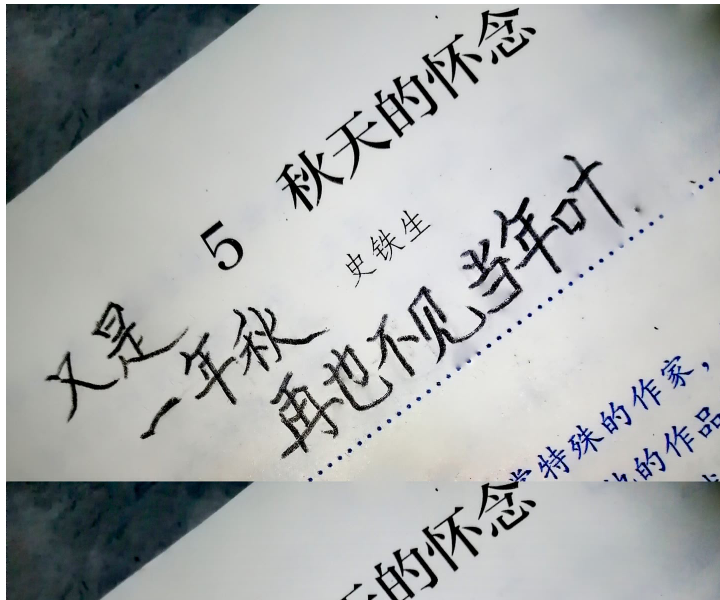 5 秋天的怀念
史铁生
又是
一年秋
再也不见当年叶
特殊的作家，
的作品
天的怀念